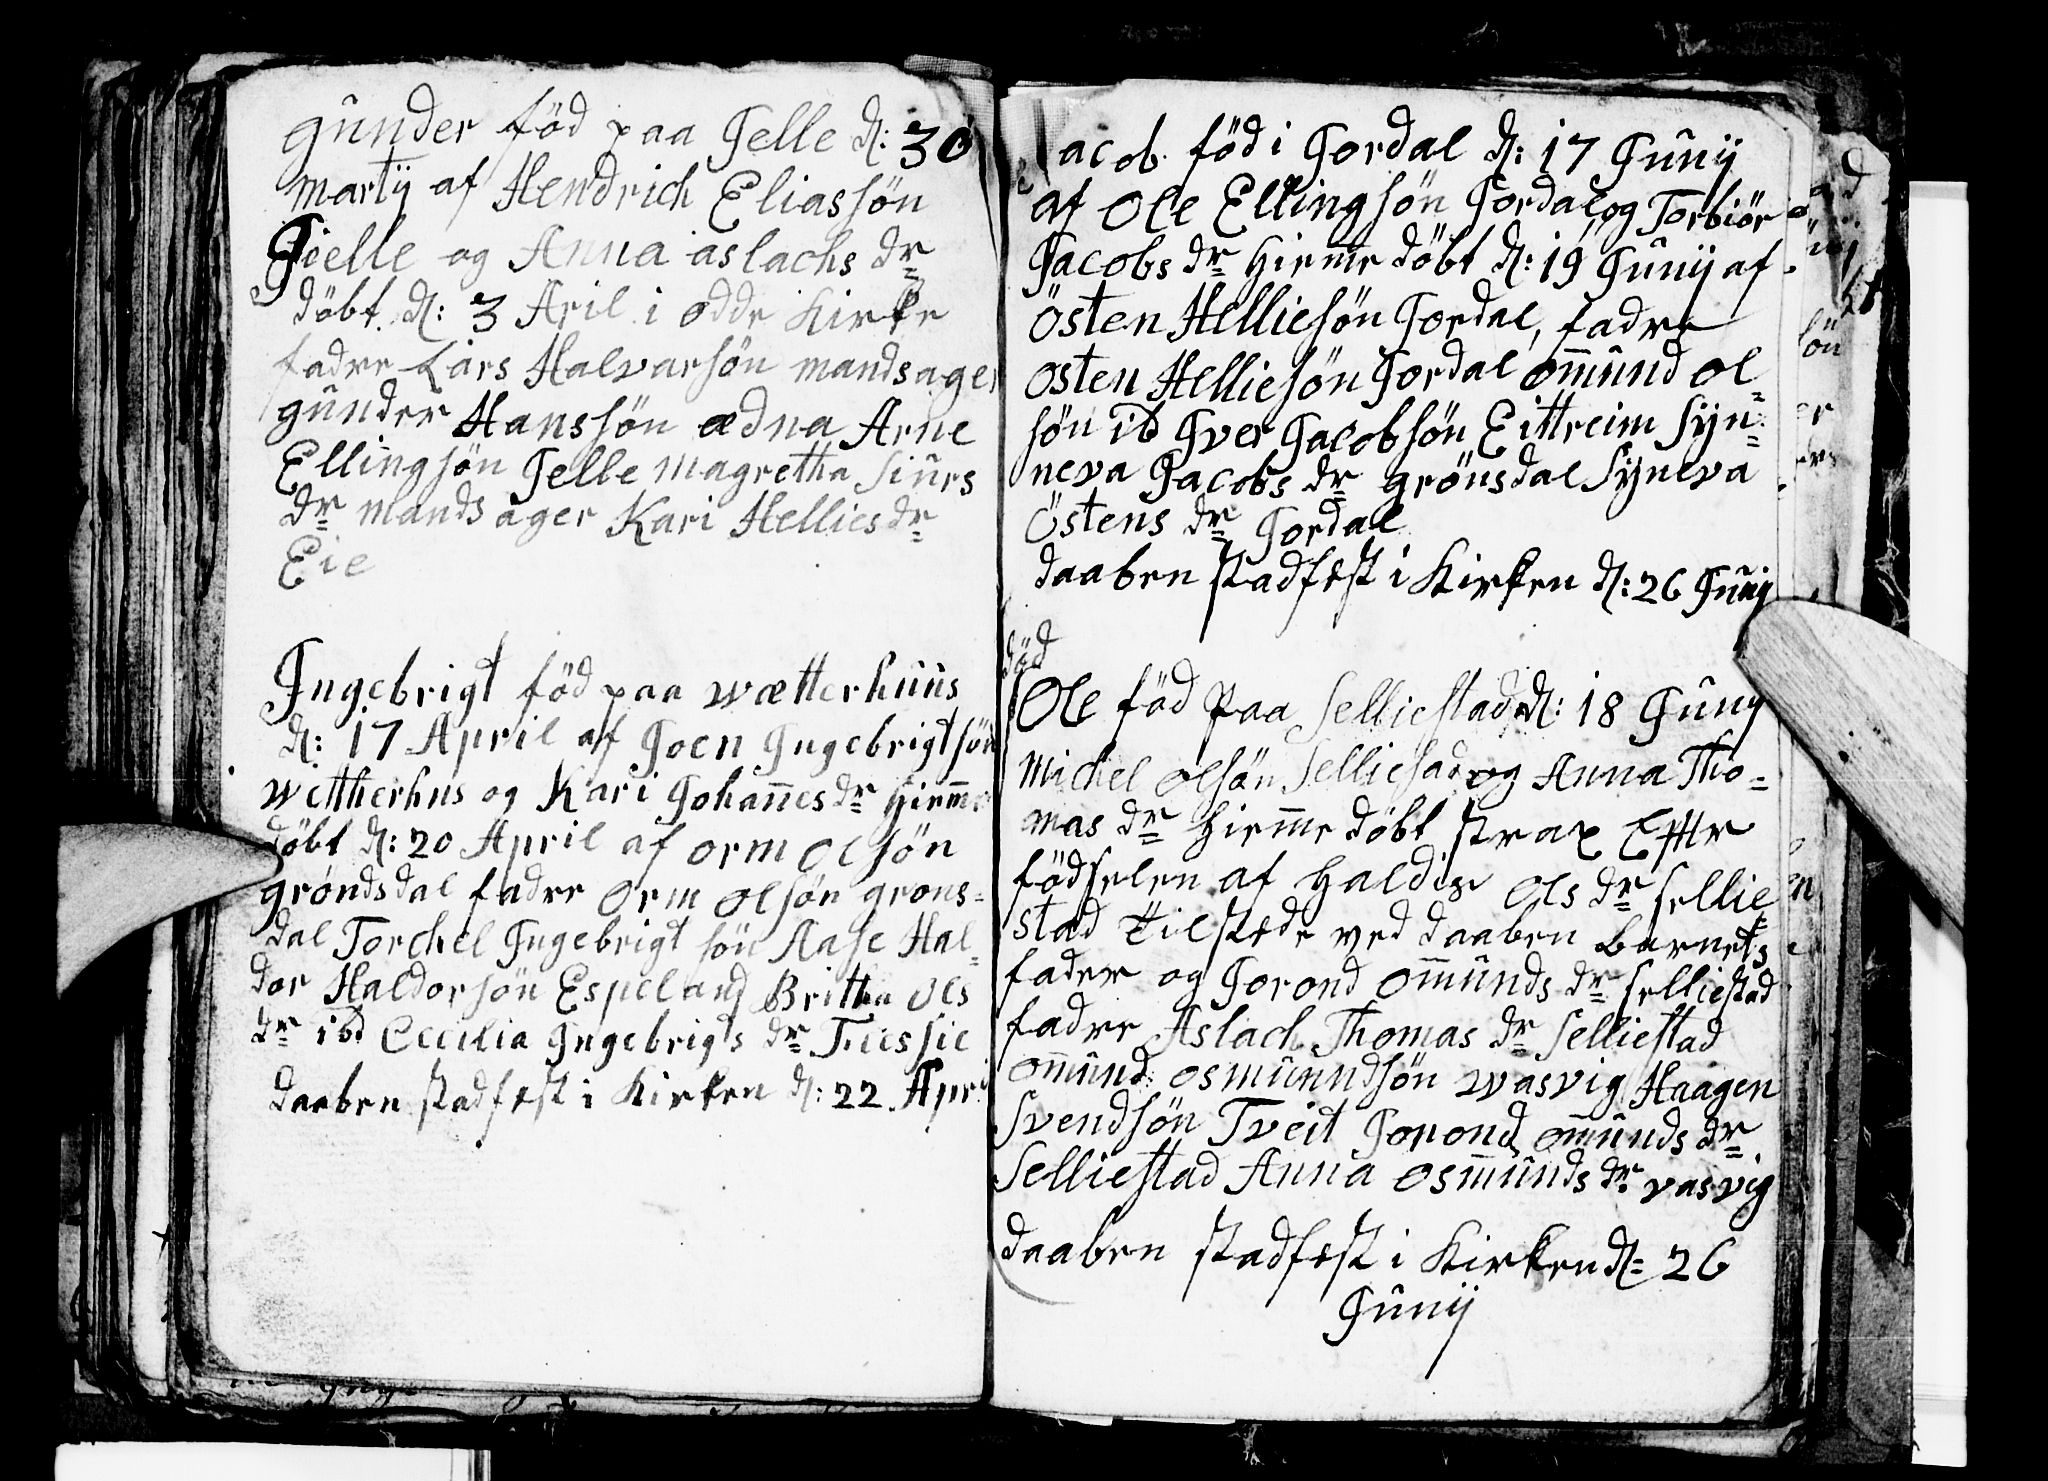 gunder föd paa Jelle d: 30
martij af Hendrich Eliassön
Jielle og Anna aslachs dr
döbt d: 3 Aril i odde Kirke
fadre Lars Halvarsön mandsager
gunder Hanssön ædna Arne
Ellingsön Jelle magretha siurs
dr mandsager Kari Hellies dr
Eie
Ingebrigt föd paa wætterhuus
d: 17 April af Joen Ingebrigtsön
wetherhus og Kari Johañes dr hiem̄e
döbt d: 20 April af orm olsön
gröndsdal fadre Orm olsön grons=
dal Torchel Ingebrigt sön Aase Hal=
dor Haldorsön Espeland Britha ols
dr ibd Cecilia Ingebrigts dr
daaben stadfest i Kirken d: 22 Apri
Jacob föd i Jordal d: 17 Junij
af Ole Ellingsön Jordal og Torbiör
Jacobs dr hiem̄e döbt d: 19 Junij af
Östen Helliesön Jordal, fadre
osten Helliesön Jordal om̄und ol=
sön ib Iver Jacobsön Eittreim Syn=
neva Jacobs dr grönsdal Syneva
Östens dr Jordal
daaben stadfest i Kirken d: 26 Junij
död
Ole föd paa Selliestad d: 18 Juny
michel olsön Selliesad og Anna Tho=
mas dr hiem̄e döbt strax Efttr
födselen af haldis ols dr sellie=
stad tilstede ved daaben barnets
fader og Jorond om̄unds dr selliestad
fadre Aslach Thomas dr Selliestad
om̄und osmunndsön wasvig Haagen
Svendsön Tveit Jorond om̄unds dr
Selliestad Anna osm̄unds dr vasvig
daaben stadfest i Kirken d= 26
Junij